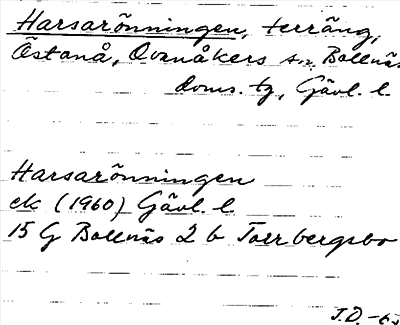 Harsarönningen, terräng,
Östanå, Ovanåkers sn, Bollnäs
doms. tg, Gävl. l.
Harsarönningen
ek (1960) Gävl. l
15 G Bollnäs 2 b Torrbergsbo
J.D. -65